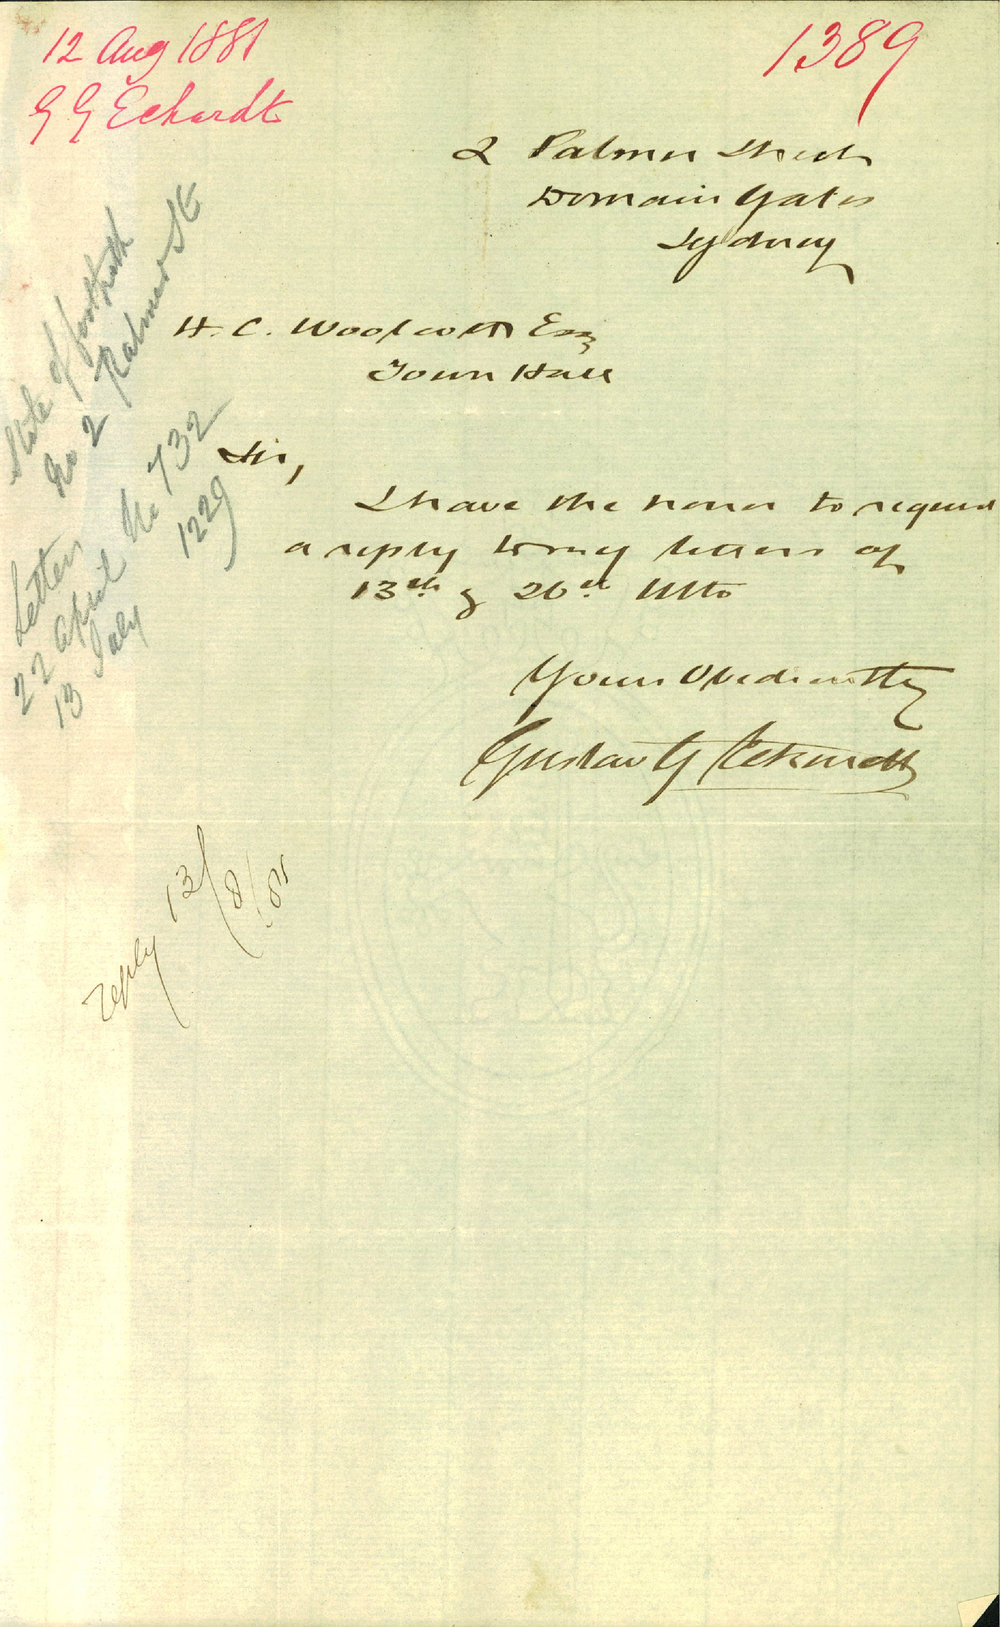 12 Aug 1881
G G Eckardt
1389
2 Palmer Street
Domain Gates
Sydney
H. C. Woolcott Esq
Town Hall
Sir,
I have the honor to request
a reply to my letters of
13th & 26th Ulto
Yours Obediently
Gustav G Eckardt
State of footpath
No 2 Palmer St
Letters
22 April No 732
13 July 1229
reply 13/8/81